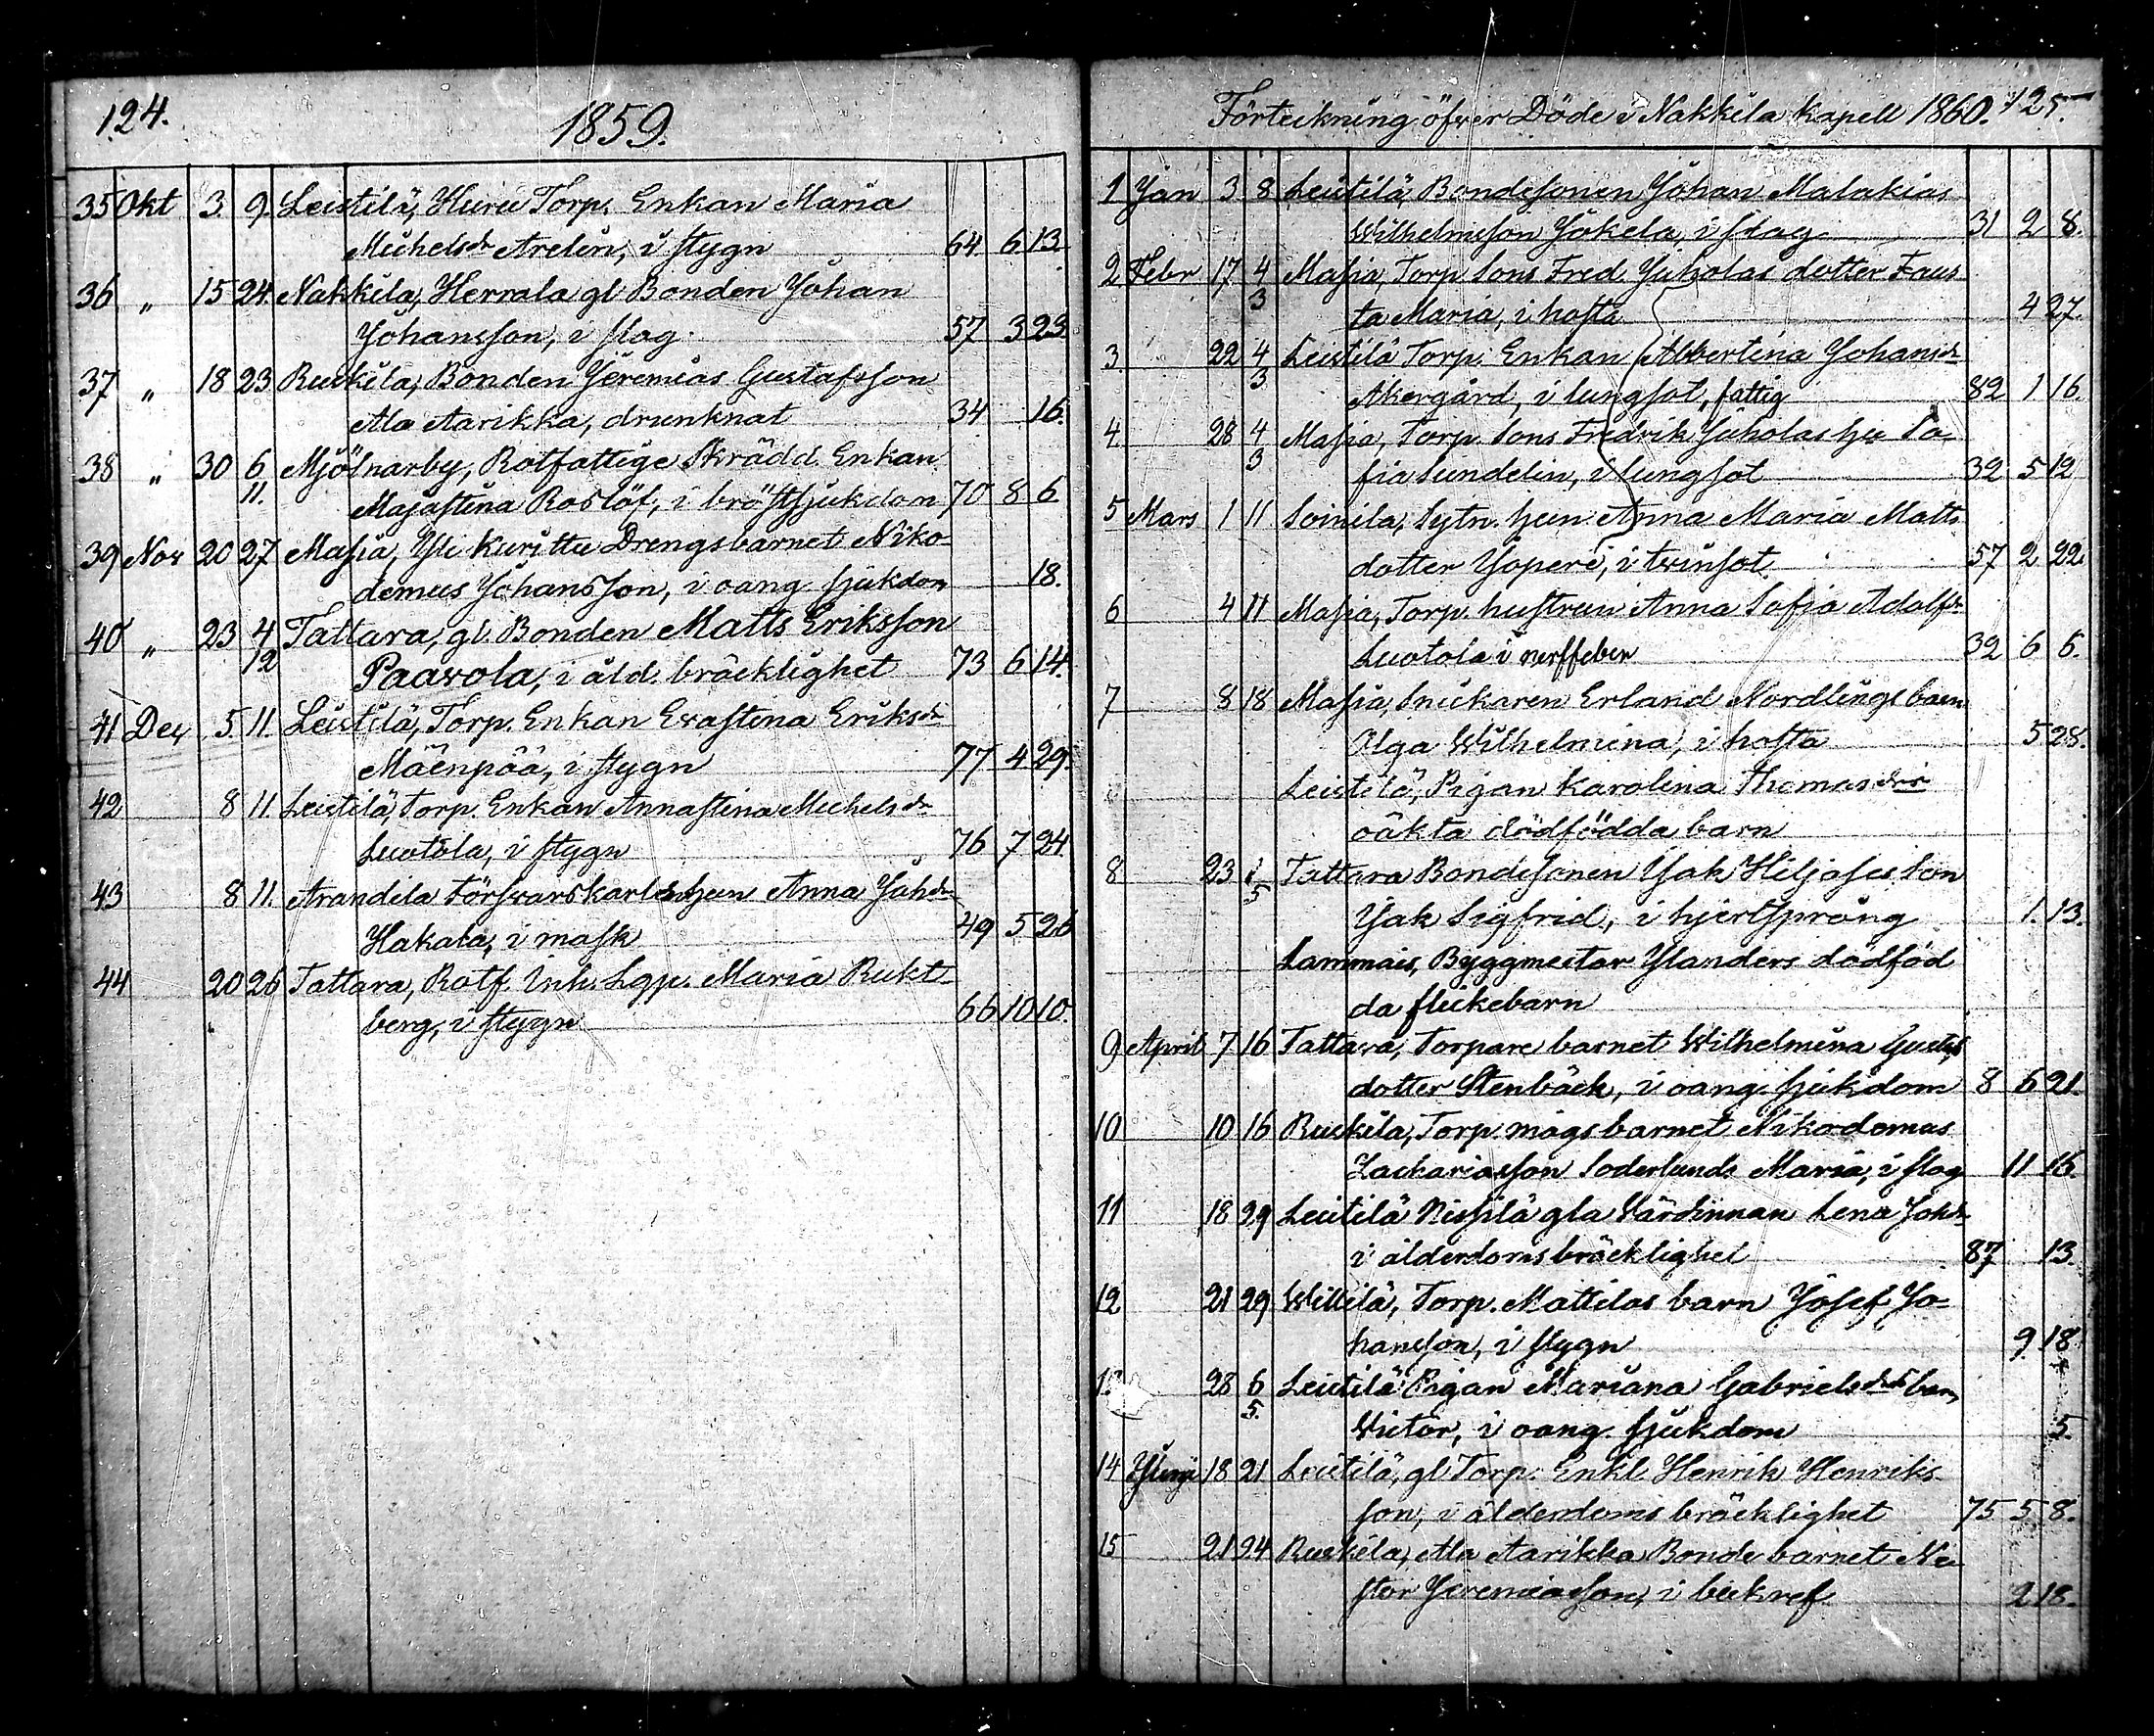 124.
1859.
35 Okt 3. 9. Leistilä, Huru Torp. Enkan Maria
Michelsdr Arelin, i stygn 64 6 13
36 „ 15 24. Nakkila, Herrala gl. Bonden Johan
Johansson, i slag 57 3 23.
37 „ 18 23 Ruskila, Bonden Jeremias Gustafsson
Ala Aarikka, drunknat 34 16.
38 „ 30 6/11. Mjölnarby, Rotfattige Skrädd. Enkan
Majastina Roslöf, i bröstsjukdom 70 8 6
39 Nov 20 27 Masia, Yli Kurittu Drengsbarnet Niko-
demus Johansson, i oang. sjukdom 18.
40 „ 23 4/12 Tattara, gl. Bonden Matts Eriksson
Paavola, i åld. bräcklighet 73 6 14.
41 Dec 5 11. Leistilä, Torp. Enkan Evastina Eriksdr
Mäenpää, i stygn 77 4 29.
42 8 11. Leistilä, Torp. Enkan Annastina Michelsdr
Luotola, i stygn 76 7 24.
43 8 11. Arandila Försvarskarlens hun Anna Johdr
Hakala, i mask 49 5 26
44 20 26 Tattara, Rotf. Inh. Lgp. Maria Rukt-
berg, i stygn 66 10 10.
Förteckning öfver Döde i Nakkila Kapell 1860. 125.
1 Jan 3 8 Leistilä, Bondesonen Johan Malakias
Wilhelmsson Jokela, i slag 31 2 8.
2 Febr 17 4/3 Masia, Torp. Sons Fred. Juholas dotter Faus
ta Maria, i hosta 4 27.
3 22 4/3 Leistilä Torp. Enkan Albertina Johansdr
Åkergård, i lungsot, fattig 82 1 16.
4 28 4/3 Masia, Torp. Sons Fredrik Juholas hu So-
fia Sundelin, i lungsot 32 5 12
5 Mars 1 11 Soinila, Sytn. hun Anna Maria Matts
dotter Joperi, i tvinsot 57 2 22.
6 4 11 Masia, Torp. hustrun Anna Sofia Adolfsdr
Luotola i nerffeber 32 6 6.
7 8 18 Masia, Snickaren Erland Nordlings barn
Olga Wilhelmina, i hosta 5 28.
Leistilä, Pigan Karolina Thomasdrs
oäkta dödfödda barn
8 23 1/5 Tattara Bondesonen Isak Hiljases Son
Isak Sigfrid, i hjertsprång 1. 13.
Lammais, Byggmestar Ylanders dödföd
da flickebarn
9 April 7 16 Tattara, Torpare barnet Wilhelmina Gustafs
dotter Stenbäck, i oang. sjukdom 8 6 21.
10 10 16 Ruskila, Torp. mågs barnet Nikodemus
Zackariasson Soderlunds Maria, i slag 11 16.
11 18 29 Leistilä Nissilä gla Värdinnan Lena Johdr
i ålderdoms bräcklighet 87 13.
12 21 29 Willilä, Torp. Mattilas barn Josef Jo-
hansson, i stygn 9 18
28 6/5. Leistilä Pigan Mariana Gabrielsdrs barn
Victor, i oang. sjukdom 5.
14 Juni 18 21 Leistilä, gl. Torp. Enkl. Henrik Henriks-
son, i ålderdoms bräcklighet 75 5 8.
15 21 24 Ruskila, Ala Aarikka Bonde barnet Ne-
stor Jeremiasson, i bukref 2 18.